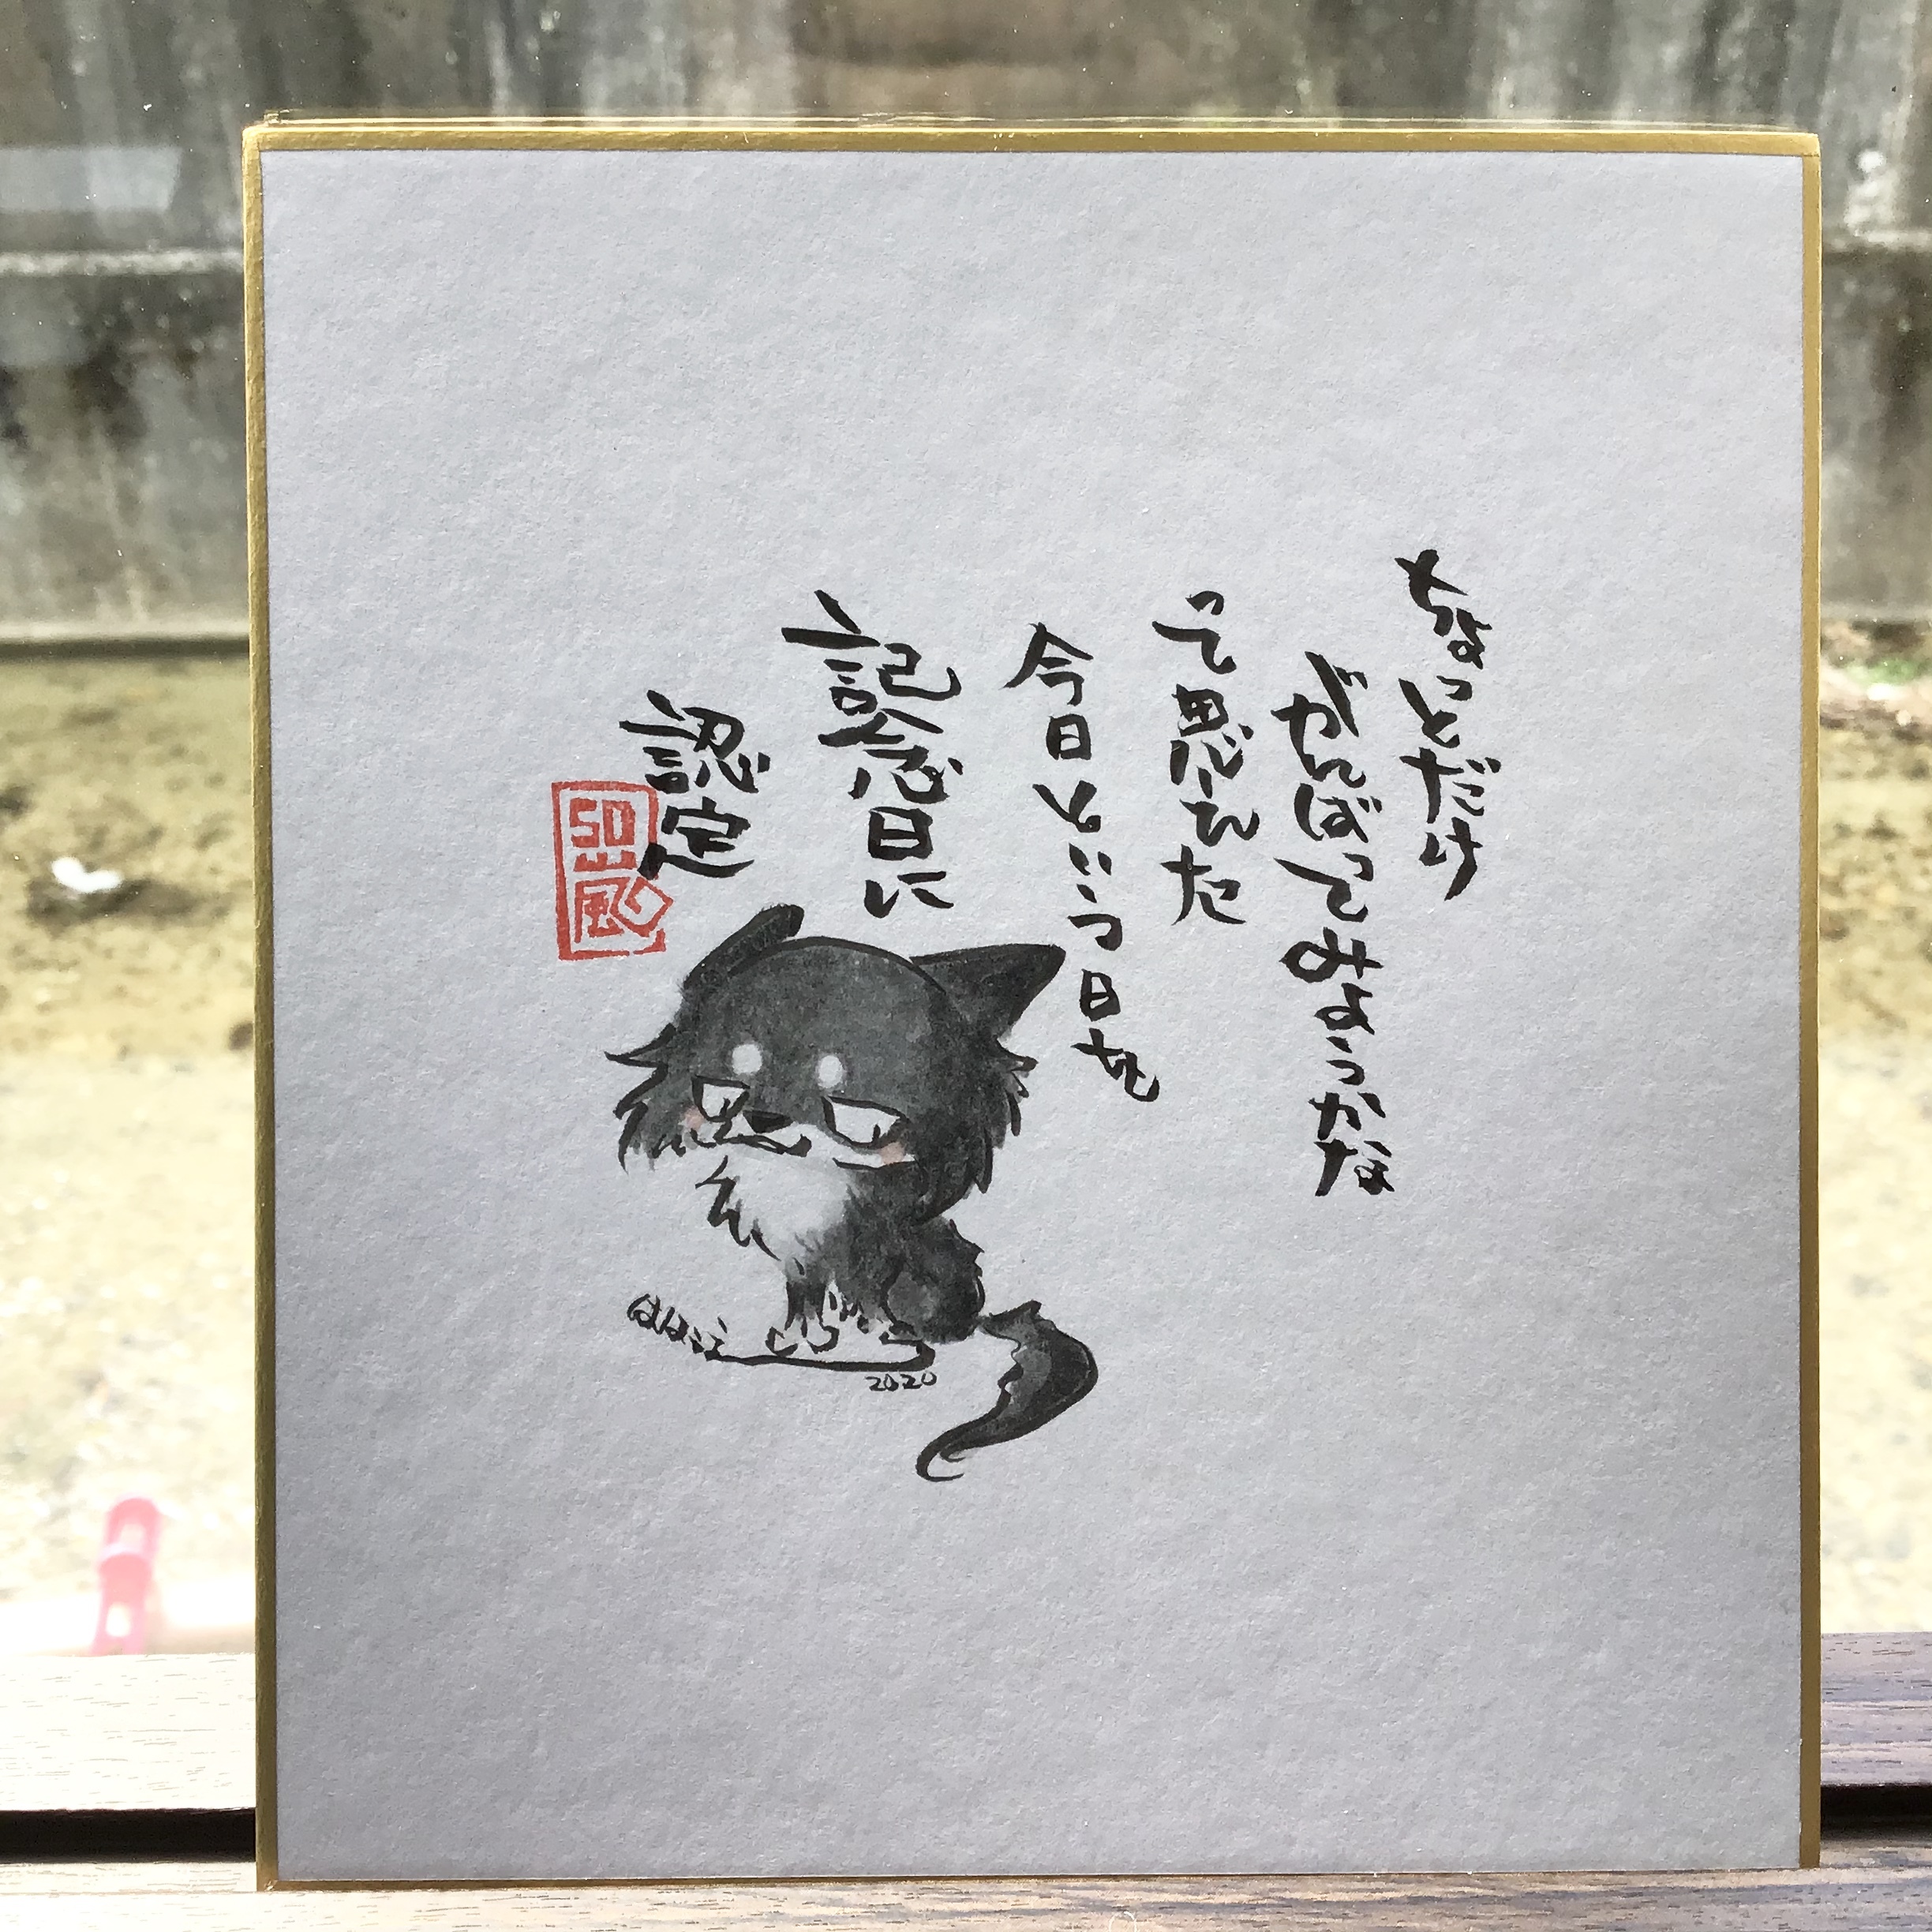 ちょっとだけ
がんばってみようかな
って思えた
今日という日も
記念日に
認定
2020